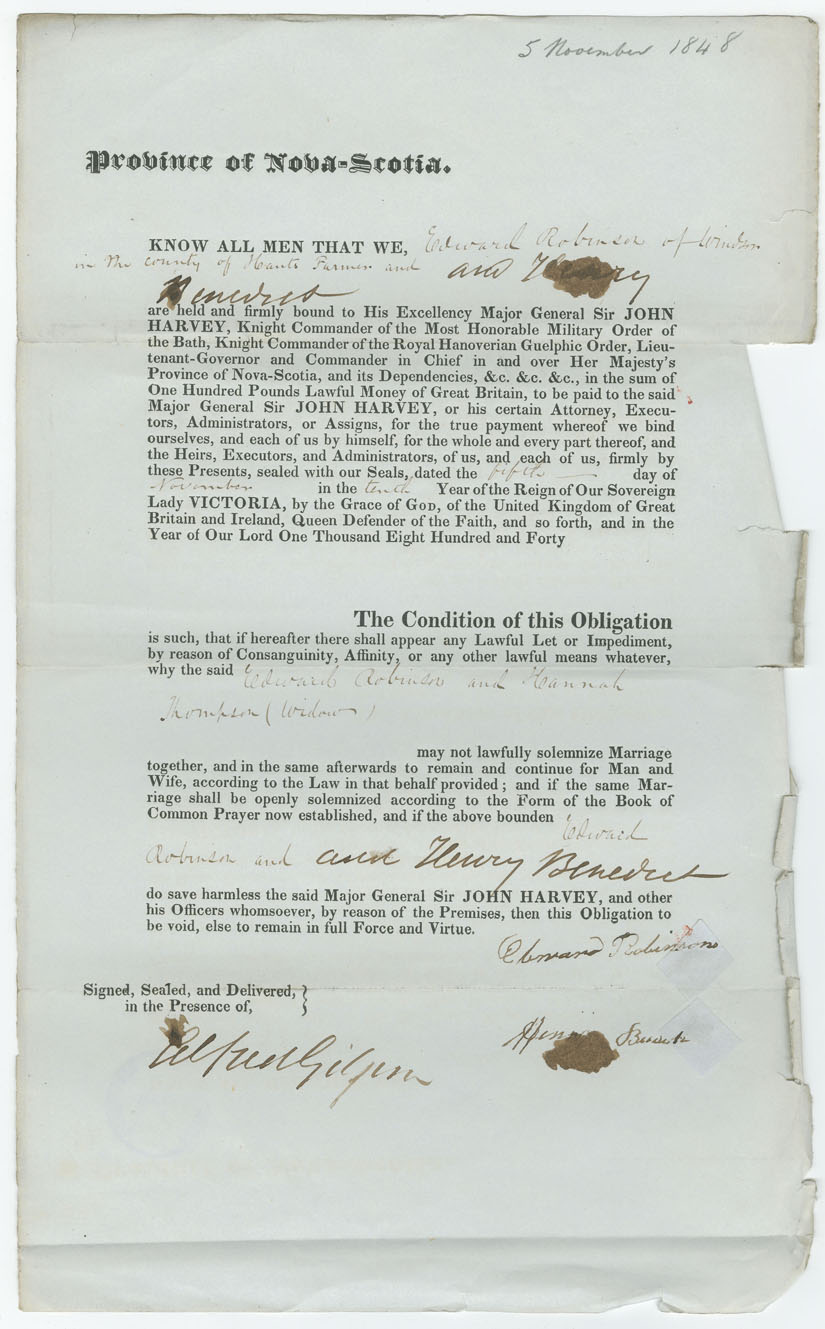 5 November 1848
Province of Nova-Scotia.
KNOW ALL MEN THAT WE, Edward Robinson of Windsor
in the county of Hants Farmer and and Henry
Benedict
are held and firmly bound to His Excellency Major General Sir JOHN
HARVEY, Knight Commander of the Most Honorable Military Order of
the Bath, Knight Commander of the Royal Hanoverian Guelphic Order, Lieu-
tenant-Governor and Commander in Chief in and over Her Majesty's
Province of Nova-Scotia, and its Dependencies, &c. &c. &c., in the sum of
One Hundred Pounds Lawful Money of Great Britain, to be paid to the said
Major General Sir JOHN HARVEY, or his certain Attorney, Execu-
tors, Administrators, or Assigns, for the true payment whereof we bind
ourselves, and each of us by himself, for the whole and every part thereof, and
the Heirs, Executors, and Administrators, of us, and each of us, firmly by
these Presents, sealed with our Seals, dated the fifth — day of
November in the tenth Year of the Reign of Our Sovereign
Lady VICTORIA, by the Grace of GOD, of the United Kingdom of Great
Britain and Ireland, Queen Defender of the Faith, and so forth, and in the
Year of Our Lord One Thousand Eight Hundred and Forty
The Condition of this Obligation
is such, that if hereafter there shall appear any Lawful Let or Impediment,
by reason of Consanguinity, Affinity, or any other lawful means whatever,
why the said Edward Robinson and Hannah
Thompson (Widow)
may not lawfully solemnize Marriage
together, and in the same afterwards to remain and continue for Man and
Wife, according to the Law in that behalf provided; and if the same Mar-
riage shall be openly solemnized according to the Form of the Book of
Common Prayer now established, and if the above bounden Edward
Robinson and and Henry Benedict
do save harmless the said Major General Sir JOHN HARVEY, and other
his Officers whomsoever, by reason of the Premises, then this Obligation to
be void, else to remain in full Force and Virtue.
Edward Robinson
Signed, Sealed, and Delivered,
in the Presence of,
Henry
Alfred Gilpin